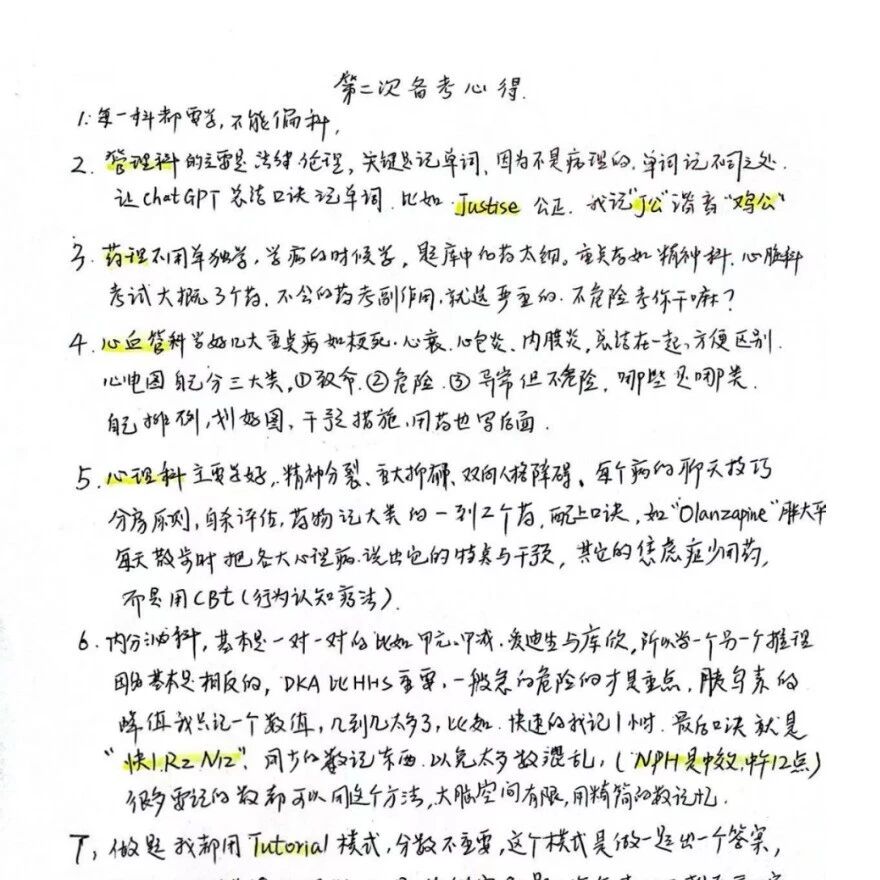 第二次备考心得.
1. 每一科都要学,不能偏科,
2. 管理科的主要是法律伦理,关键是记单词,因为不是病理的.单词记不同之处.
让ChatGPT总结口诀记单词.比如.Justise 公正.我记"J公"谐音"鸡公"
3. 药理不用单独学,学病的时候学,题库中的药太细。重点存如精神科.心脏科
考试大概3个药.不会的药考副作用.就选严重的.不危险考你干嘛?
4. 心血管科学好几大重点病如梗死.心衰.心包炎、内膜炎,总结在一起,方便区别.
心电图自己分三大类,①致命.②危险.③异常但不危险,哪些是哪类.
自己排列,划好图,干预措施,用药也写后面.
5. 心理科主要学好,精神分裂、重大抑郁、双向人格障碍、每个病的聊天技巧
分房原则,自杀评估,药物记大类的一到2个药,配上口诀,如"Olanzapine"胖大平
每天散步时把各大心理病.说出它的特点与干预,其它的焦虑症少用药,
而是用CBt(行为认知疗法).
6. 内分泌科,基本是一对一对的比如甲亢.甲减.爱迪生与库欣,所以学一个另一个推理
因为基本是相反的,DKA比HHS重要,一般急的危险的才是重点,胰岛素的
峰值我只记一个数值,几到几太多了,比如.快速的我记1小时.最后口诀就是
"快1.R2.N12".同步的数记东西.以免太多数混乱,(NPH是中效,中午12点)
很多要记的数都可以用这个方法,大脑空间有限,用精简的数记忆.
7, 做题我都用Tutorial模式,分数不重要,这个模式是做一题出一个答案,